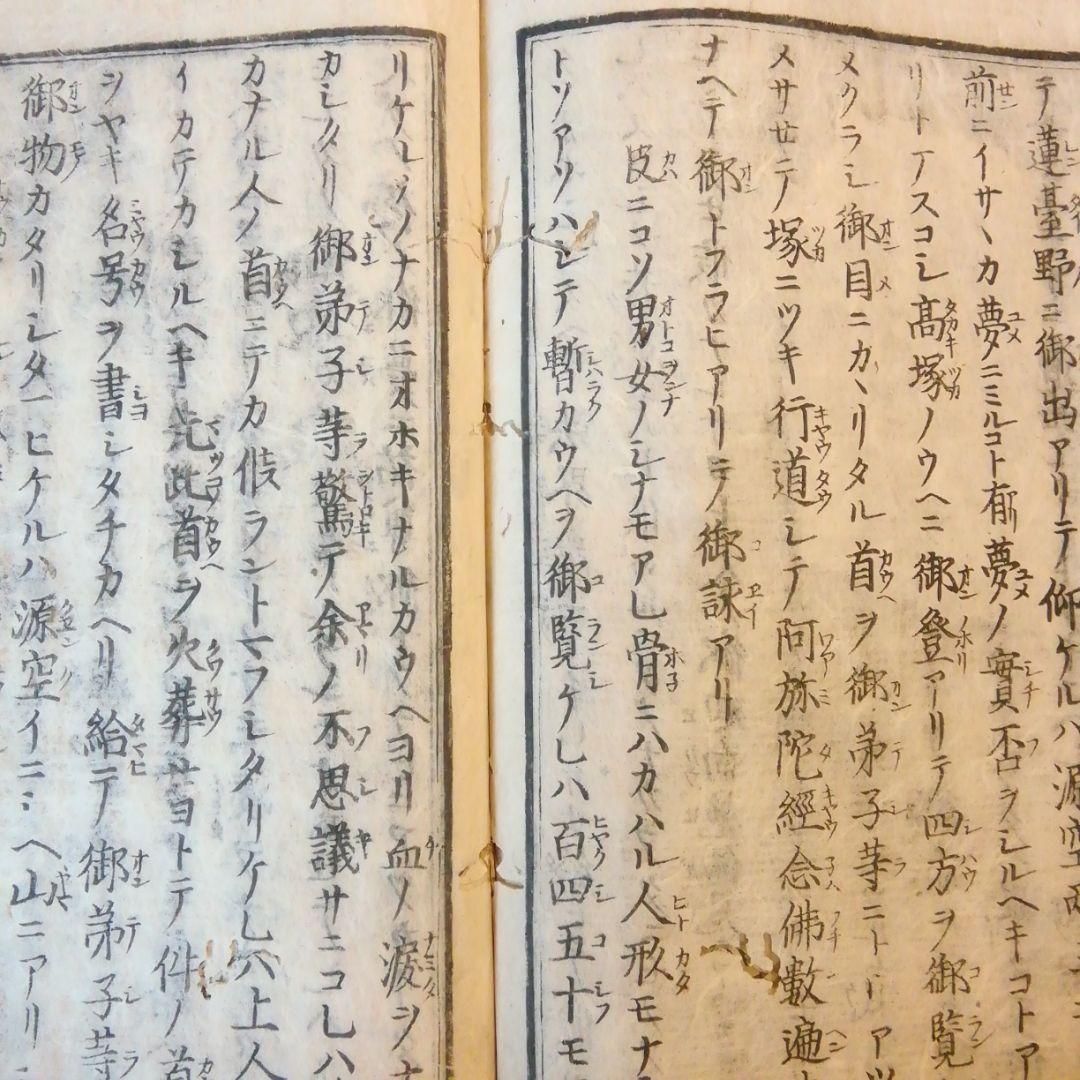 テ蓮臺野ニ御出アリテ仰ケルハ源空
前ニイサヽカ夢ニミルコト有夢ノ實否ヲシルヘキコトア
リトテスコシ髙塚ノウヘニ御登アリテ四方ヲ御覧
メクラシ御目ニカヽリタル首ヲ御弟子等ニ
メサせテ塚ニツキ行道シテ阿旀陀經念佛數遍
ナヘテ御トフラヒアリシノ御詠アリ
皮ニコソ男女ノシナモアレ骨ニハカハル人形モナ
トソアソハシテ暫カウヘヲ御覧ケレハ百四五十モ
リケルソノナカニオホキナルカウヘヨリ血ノ涙ヲ
カシタリ御弟子等驚テ余ノ不思議サニコレハ
カナル人ノ首ニテカ候ラントマフシタリケレハ上人
イカテカシルヘキ先此首ヲ火葬せヨトテ件ノ首
ヲヤキ名号ヲ書シタチカヘリ給テ御弟子等
御物カタリシタマヒケルハ源空イニシヘ山ニアリ